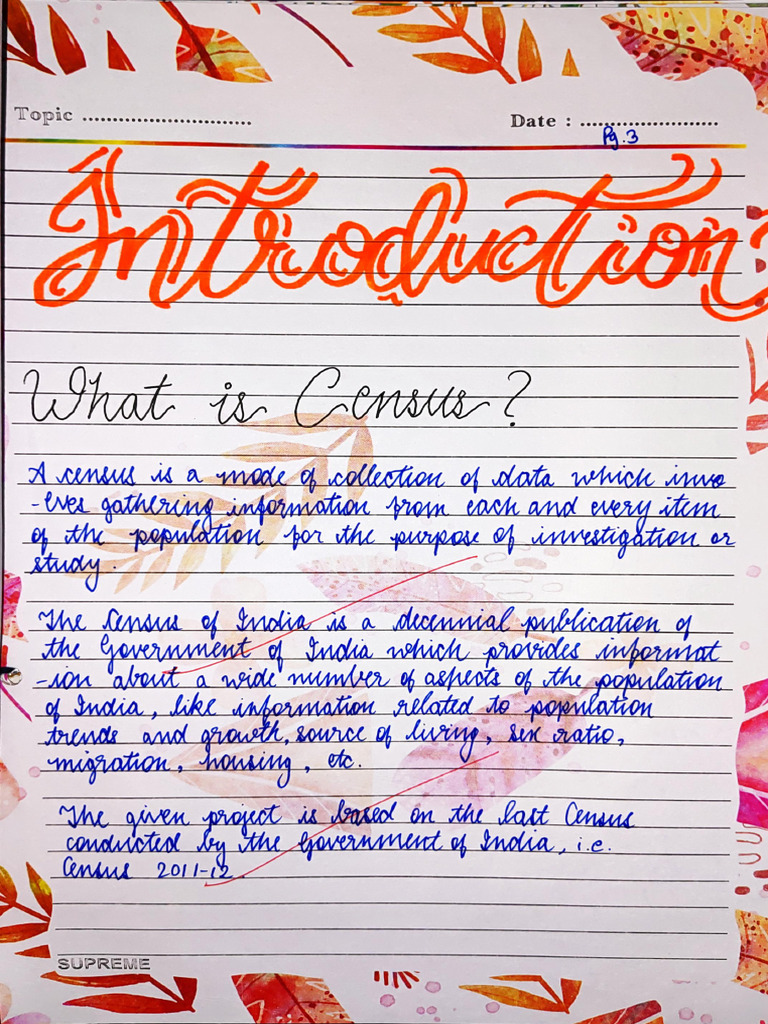 Topic ............................
Date : ........................
Pg. 3
Introduction
What is Census?
A census is a mode of collection of data which invo
-lves gathering information from each and every item
of the population for the purpose of investigation or
study.
The Census of India is a decennial publication of
the Government of India which provides informat
-ion about a wide number of aspects of the population
of India, like information related to population
trends and growth, source of living, sex ratio,
migration, housing, etc.
The given project is based on the last Census
conducted by the Government of India, i.e.
Census 2011-12.
SUPREME